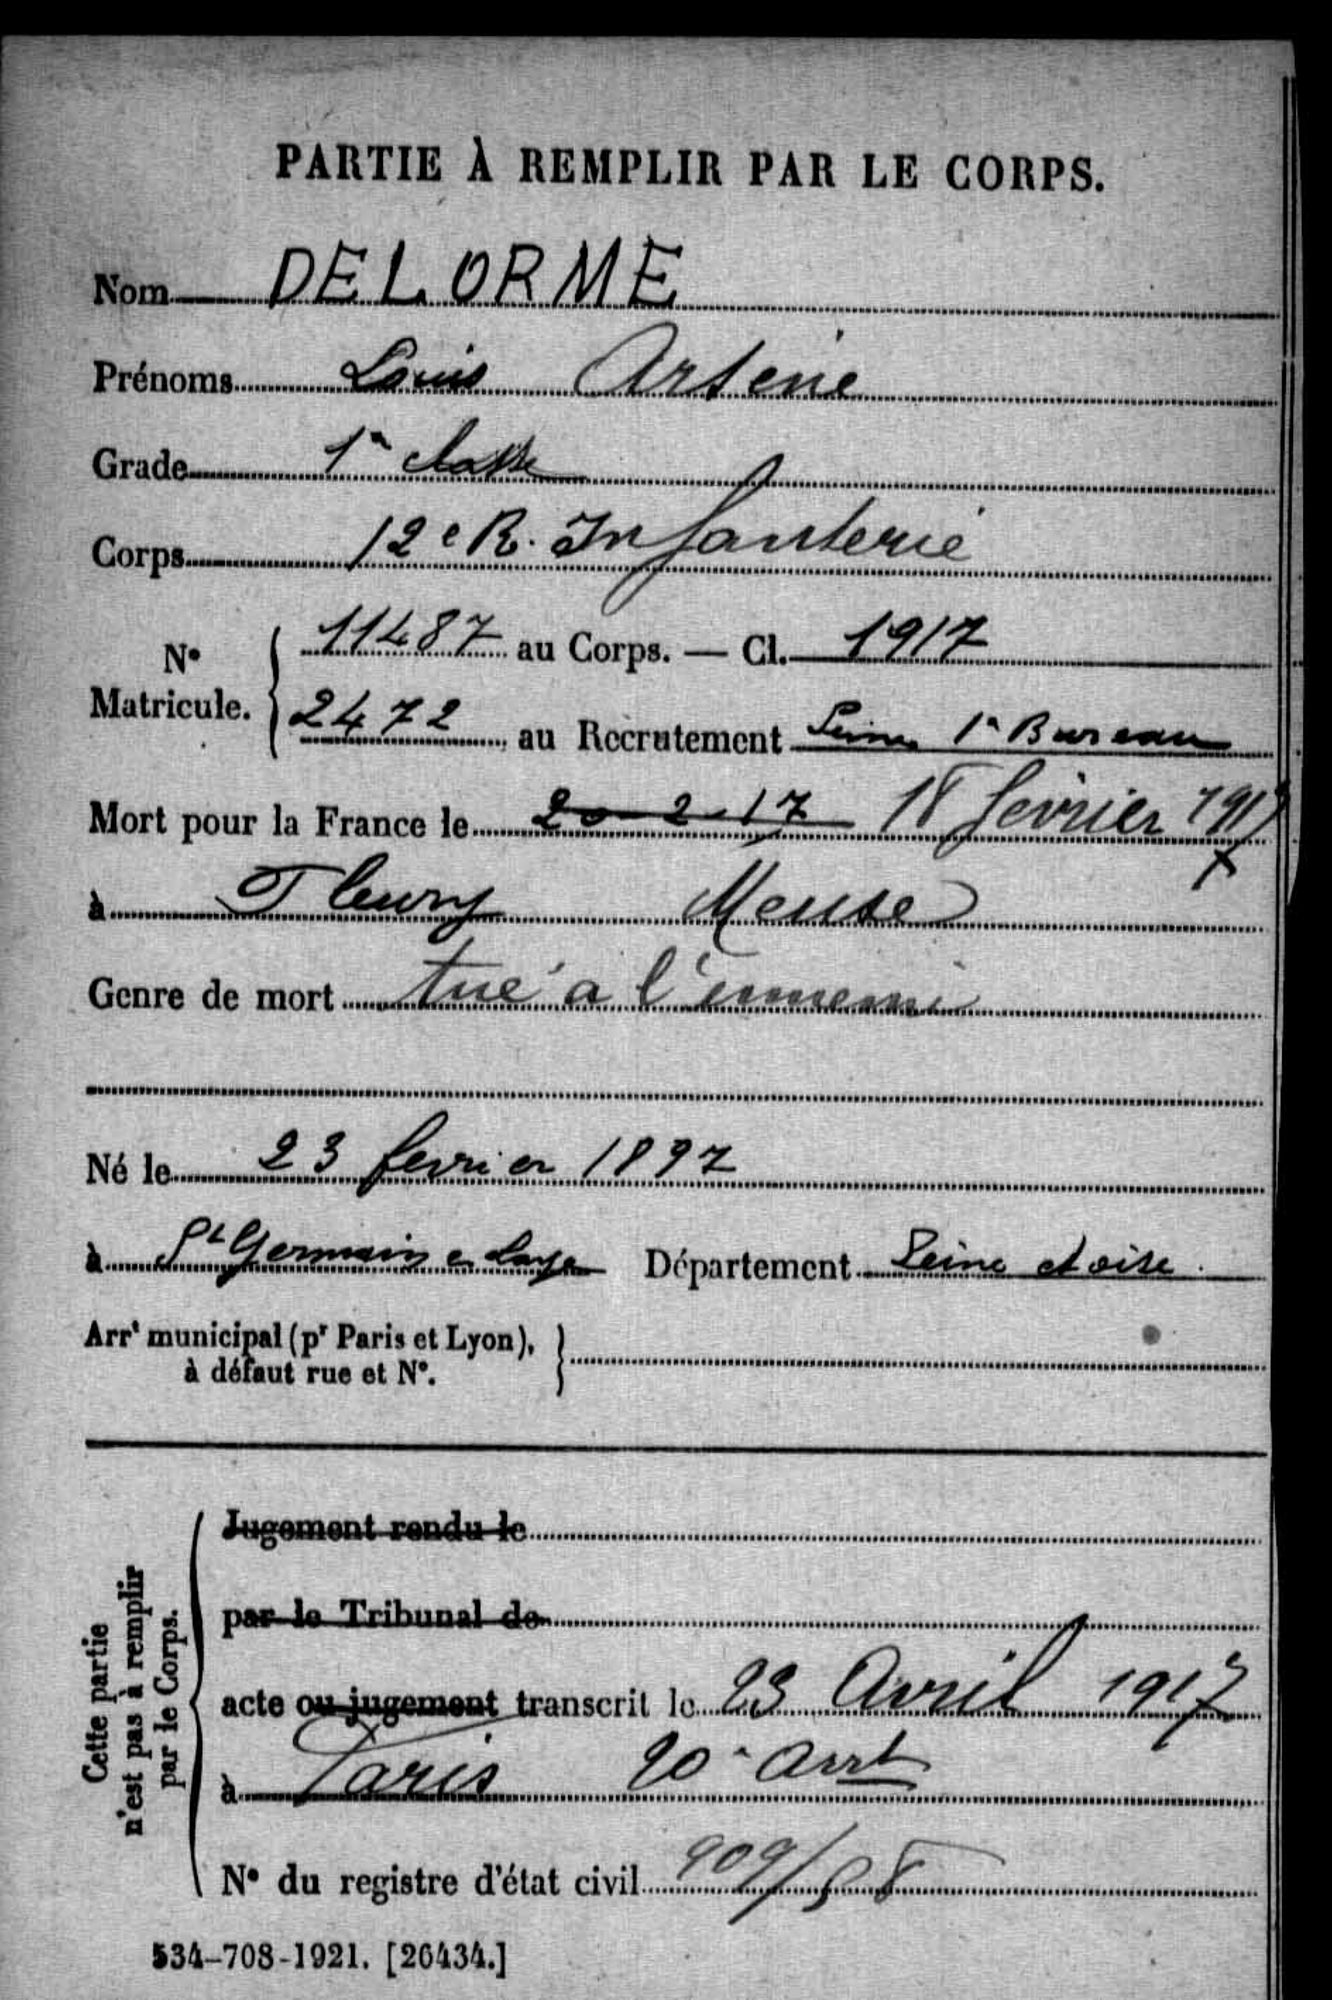 PARTIE À REMPLIR PAR LE CORPS.
Nom DELORME
Prénoms Louis Arsene
Grade 1e classe
Corps 12e R. Infanterie
No Matricule. 11487 au Corps. — Cl. 1917
2472 au Recrutement Seine 1r Bureau
Mort pour la France le 20-2-17 18 février 1917
à Fleury Meuse
Genre de mort tué à l'ennemi
Né le 23 fevrier 1897
à St Germain en Laye Département Seine et oise.
Arrt municipal (pr Paris et Lyon),
à défaut rue et No.
Cette partie
n'est pas à remplir
par le Corps.
Jugement rendu le
par le Tribunal de
acte ou jugement transcrit le 23 Avril 1917
à Paris 20e arrt
No du registre d'état civil 909/58
534-708-1921. [26434.]